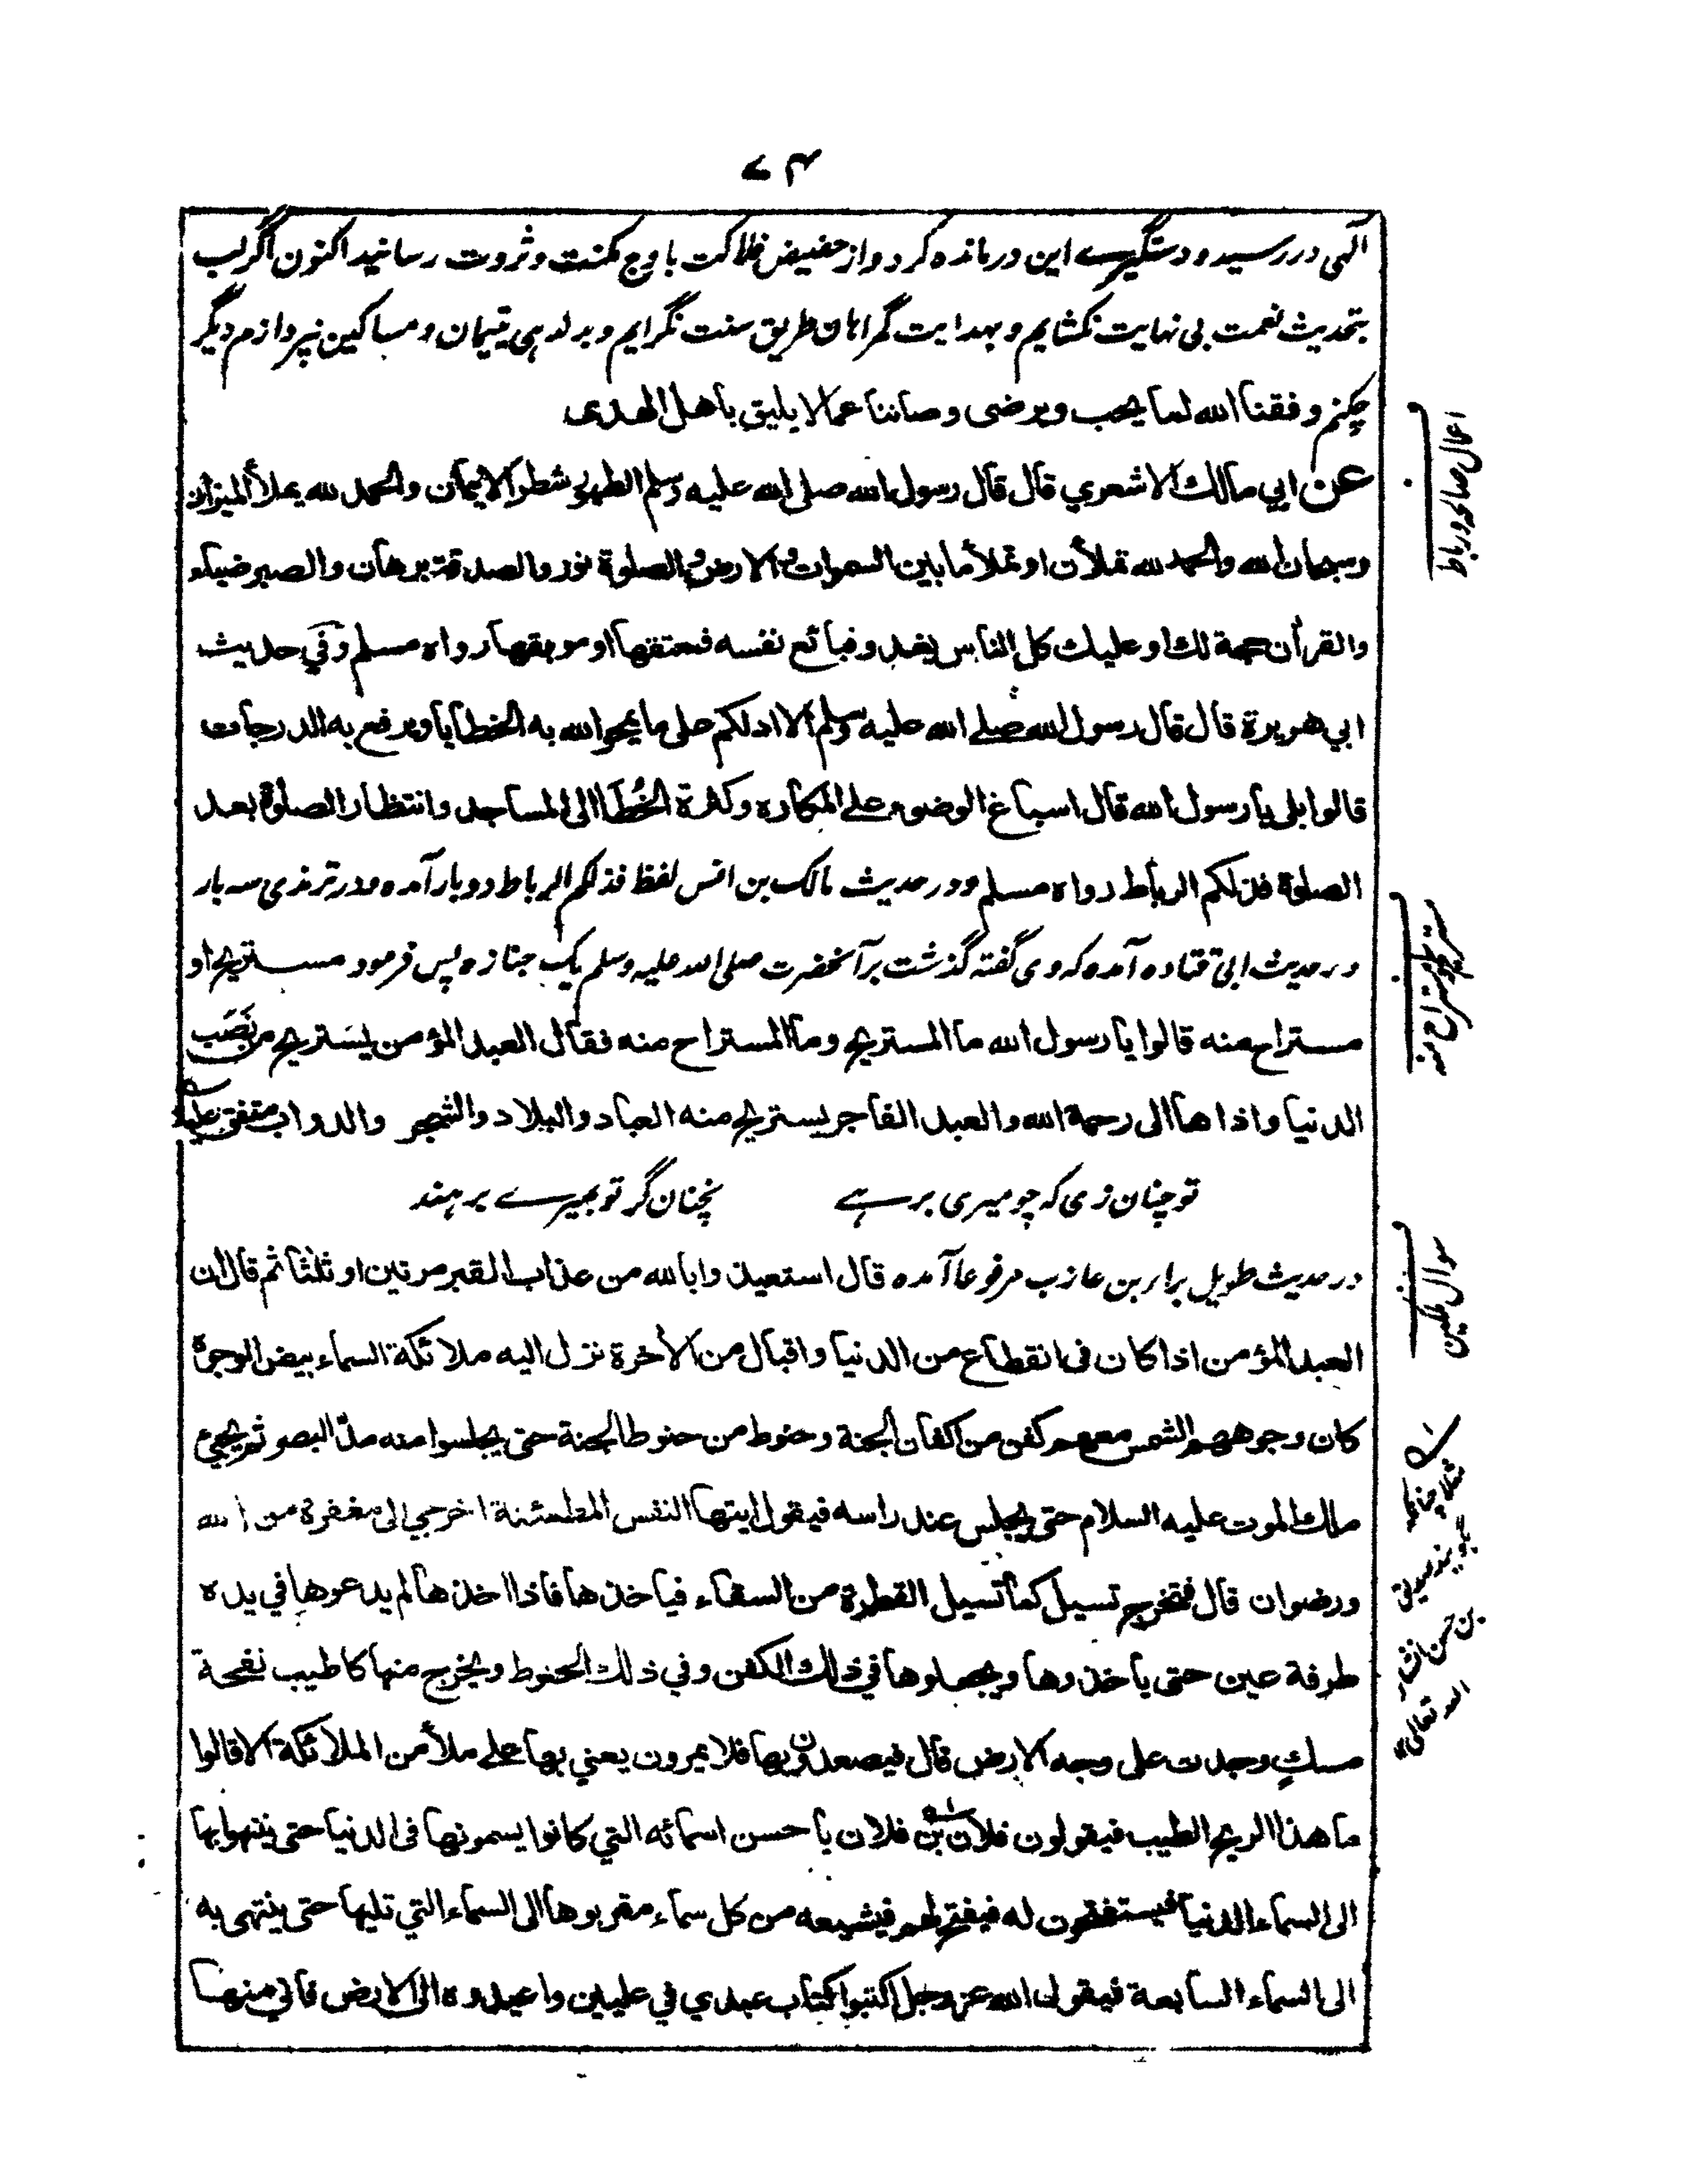 ۷۴
الٓهی در رسید و دستگیرے این درمانده کرد و از حضیض فلاکت باوج مکنت و ثروت رسانید اکنون اگر لب
بتحدیث نعمت بی نهایت نکشایم و بهدایت گمراهان طریق سنت نگرایم و بدلدهی یتیمان و مساکین نپردازم دیگر
چکنم وفقنا الله لما یحب ویرضی وصاننا عما لا یلیق باهل الهدی
عن ابي مالك الاشعري قال قال رسول الله صلی الله علیه وسلم الطهور شطر الایمان والحمد لله یملأ المیزان
وسبحان الله والحمد لله تملأن او تملأ ما بین السموات والارض والصلوة نور والصدقة برهان والصبر ضیاء
والقرأن حجة لك او علیك كل الناس یغدو فبائع نفسه فمعتقها او موبقها رواه مسلم وفي حدیث
ابي هریرة قال قال رسول الله صلے الله علیه وسلم الا ادلكم علی ما یمحو الله به الخطایا ویرفع به الدرجات
قالوا بلی یا رسول الله قال اسباغ الوضوء علے المكاره وكثرة الخُطَا الی المساجد وانتظار الصلوة بعد
الصلوة فذلكم الرباط رواه مسلم ودر حدیث مالک بن انس لفظ فذلکم الرباط دو بار آمده ودر ترمذی سه بار
در حدیث ابی قتاده آمده که وی گفته گذشت بر آنحضرت صلی الله علیه وسلم یک جنازه پس فرمود مستریح او
مستراح منه قالوا یا رسول الله ما المستریح وما المستراح منه فقال العبد المؤمن یستریح من نَصَب
الدنیا واذاها الی رحمة الله والعبد الفاجر یستریح منه العباد والبلاد والشجر والدواب متفق علیه
تو چنان زی که چو میری برہے نچنان گر تو بمیرے برہند
در حدیث طویل براء بن عازب مرفوعا آمده قال استعیذوا بالله من عذاب القبر مرتین او ثلثا ثم قال ان
العبد المؤمن اذا كان فی انقطاع من الدنیا واقبال من الأخرة نزل الیه ملائكة السماء بیض الوجوه
كان وجوههم الشمس معهم كفن من اكفان الجنة وحنوط من حنوط الجنة حتی یجلسوا منه مدّ البصر ثم یجیئ
ملك الموت علیه السلام حتی یجلس عند راسه فیقول ایتها النفس المطمئنة اخرجي الی مغفرة من الله
ورضوان قال فتخرج تسیل كما تسیل القطرة من السقاء فیاخذها فاذا اخذها لم یدعوها في یده
طرفة عین حتی یاخذوها ویجعلوها في ذلك الكفن وفي ذلك الحنوط ویخرج منها كاطیب نفحة
مسكٍ وجدت علی وجه الارض قال فیصعدون بها فلا یمرون یعني بها علے ملأ من الملائكة الا قالوا
ما هذا الریح الطیب فیقولون فلان بن فلان باحسن اسمائه التي كانوا یسمونها فی الدنیا حتی ینتهوا بها
الی السماء الدنیا فیستفتحون له فیفتح لهم فیشیعه من كل سماء مقربوها الی السماء التي تلیها حتی ینتهی به
الی السماء السابعة فیقول الله عز وجل اكتبوا كتاب عبدي في علیین واعیدوه الی الارض فاني منها
اعمال صالحه و رباط
مستریح و مستراح منه
سوال ملکین